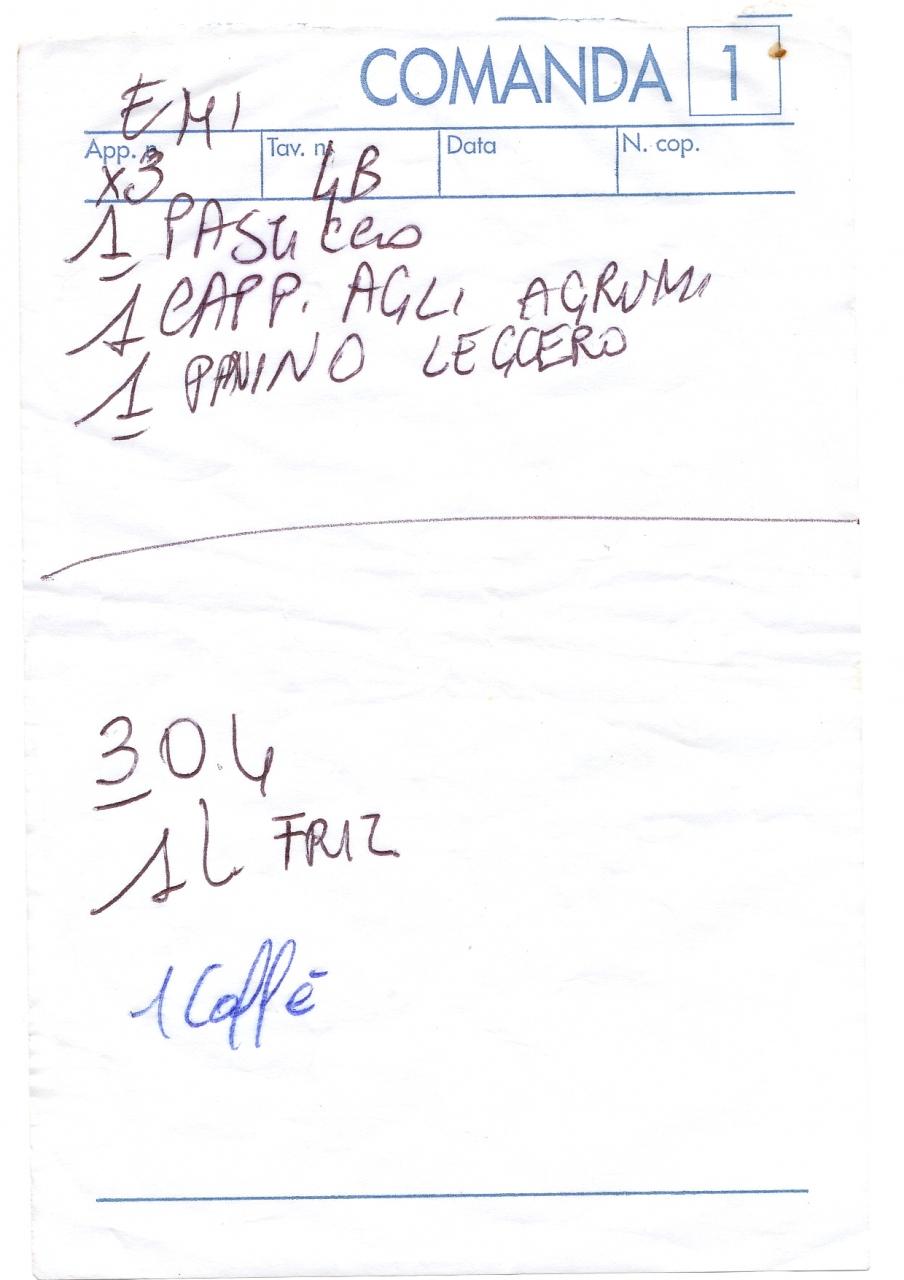 COMANDA 1
EMI
App. n. Tav. n. Data N. cop.
x3 4B
1 PASTICCIO
1 CAPP. AGLI AGRUMI
1 PANINO LEGGERO
3 0.4
1 L FRIZ
1 Caffè